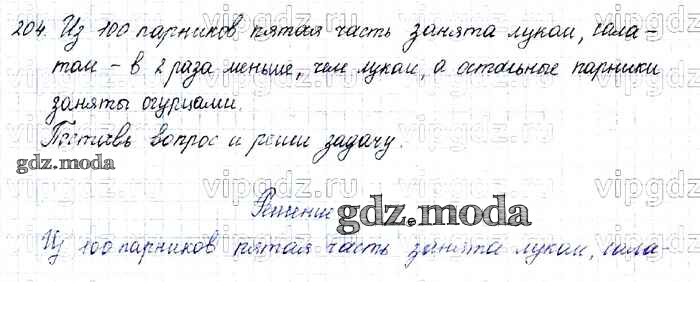 204. Из 100 парников пятая часть занята луком, сала-
том - в 2 раза меньше, чем луком, а остальные парники
заняты огурцами.
Поставь вопрос и реши задачу.
gdz.moda
Решение
gdz.moda
Из 100 парников пятая часть занята луком, сала-